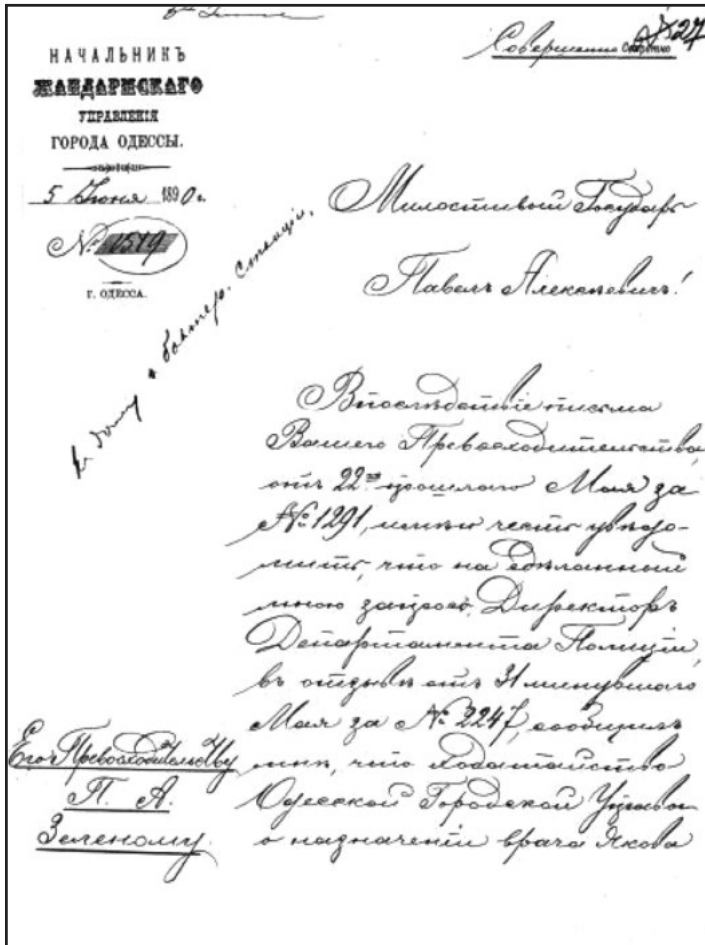 Совершенно Секретно
27
НАЧАЛЬНИКЪ
ЖАНДАРМСКАГО
УПРАВЛЕНІЯ
ГОРОДА ОДЕССЫ.
5 Іюня 1890 г.
№ 1519
г. ОДЕССА.
Къ дѣлу о бактер. станціи.
Милостивый Государь
Павелъ Алексѣевичъ!
Впослѣдствіе письма
Вашего Превосходительства,
отъ 22го прошлаго Мая за
№ 1291, имѣю честь увѣдо-
мить, что на сдѣланный
мною запросъ, Директоръ
Департамента Полиціи,
въ отзывѣ отъ 31 минувшаго
Мая за № 2247, сообщилъ
мнѣ, что ходатайство
Одесской Городской Управы
о назначеніи врача Якова
Его Превосходительству
П. А.
Зеленому.